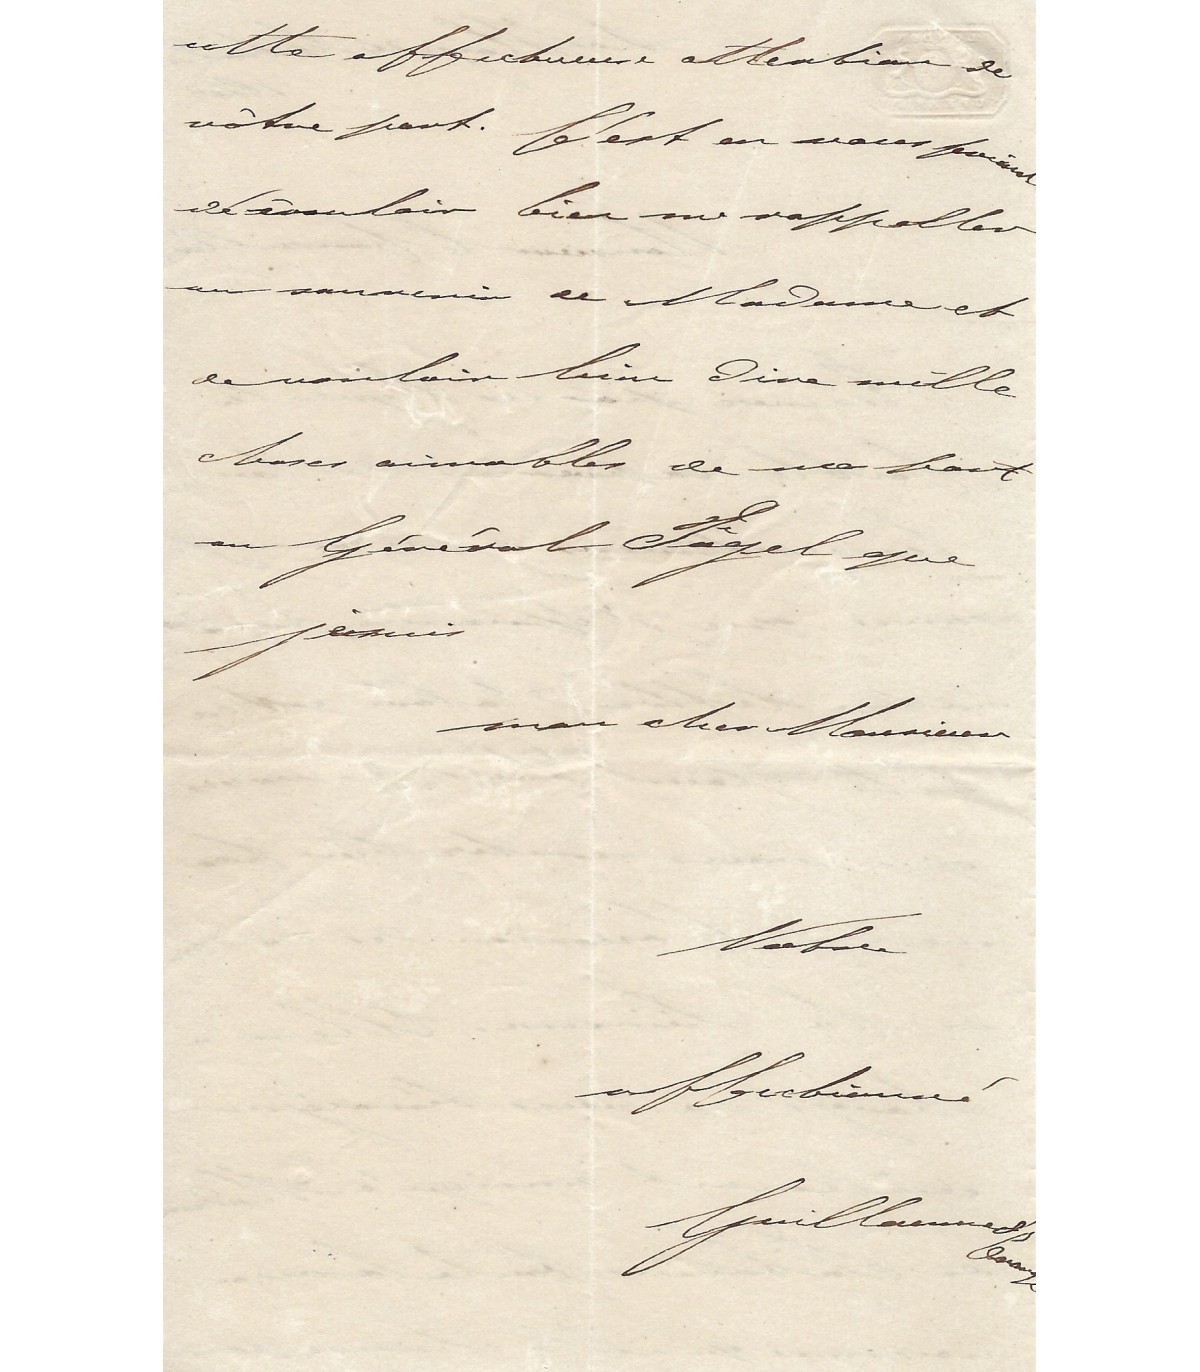 cette affectueuse attention de
vôtre part. C'est en vous priant
de vouloir bien me rappeller
au souvenir de Madame et
de vouloir bien dire mille
choses aimables de ma part
au Général Fagel que
je suis
mon cher Monsieur
Votre
affectionné
Guillaume Pce
d'Orange